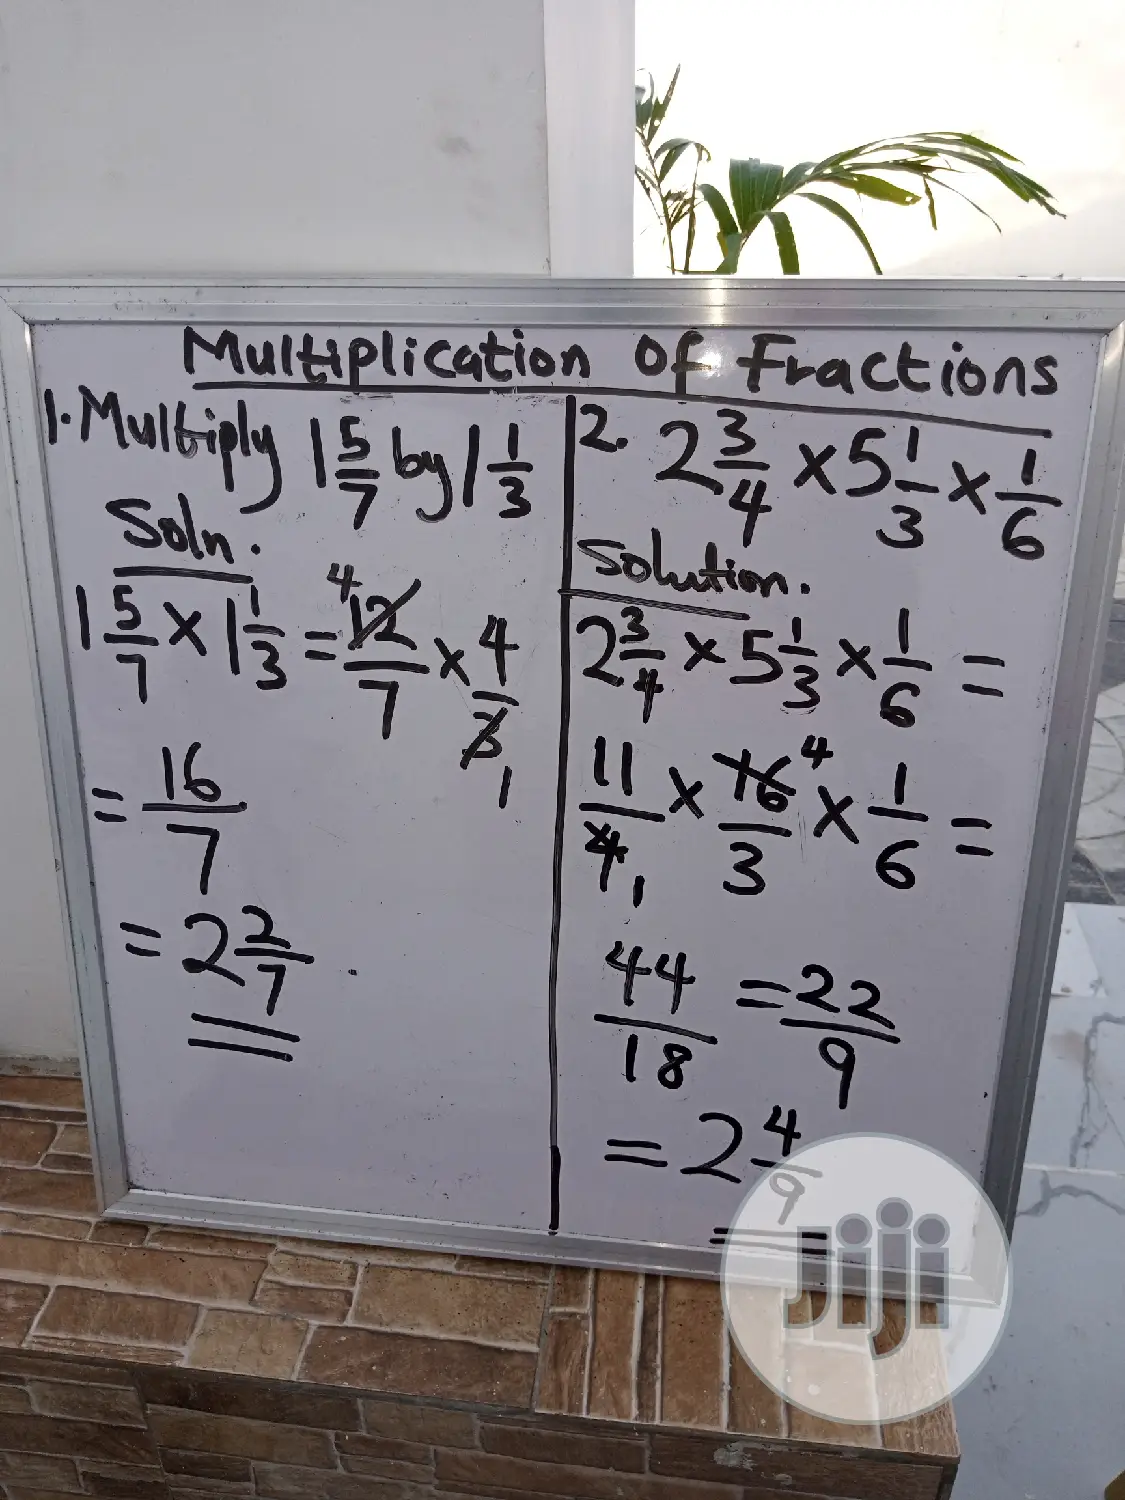 Multiplication of Fractions
1. Multiply 1 5/7 by 1 1/3
Soln.
1 5/7 × 1 1/3 = 12/7 4 × 4/3 1
= 16/7
= 2 2/7
2. 2 3/4 × 5 1/3 × 1/6
Solution.
2 3/4 × 5 1/3 × 1/6 =
11/4 1 × 16/3 4 × 1/6 =
44/18 = 22/9
= 2 4/9
JiJi